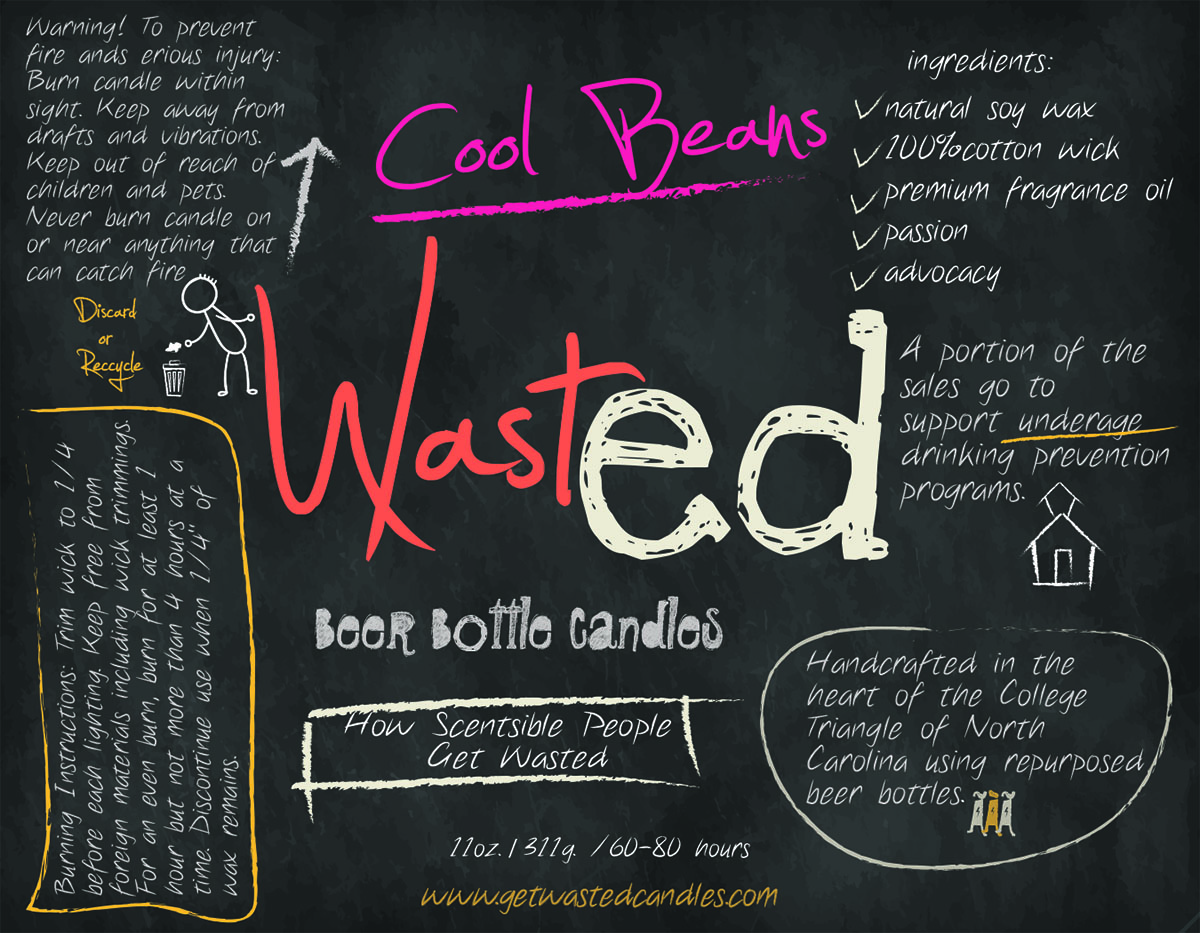 Warning! To prevent
fire ands erious injury:
Burn candle within
sight. Keep away from
drafts and vibrations.
Keep out of reach of
children and pets.
Never burn candle on
or near anything that
can catch fire
Discard
or
Reccycle
Burning Instructions: Trim wick to 1/4
before each lighting. Keep free from
foreign materials including wick trimmings.
For an even burn, burn for at least 1
hour but not more than 4 hours at a
time. Discontinue use when 1/4" of
wax remains.
Cool Beans
Wasted
Beer Bottle Candles
How Scentsible People
Get Wasted
11oz. | 311g. / 60-80 hours
www.getwastedcandles.com
ingredients:
natural soy wax
100%cotton wick
premium fragrance oil
passion
advocacy
A portion of the
sales go to
support underage
drinking prevention
programs.
Handcrafted in the
heart of the College
Triangle of North
Carolina using repurposed
beer bottles.